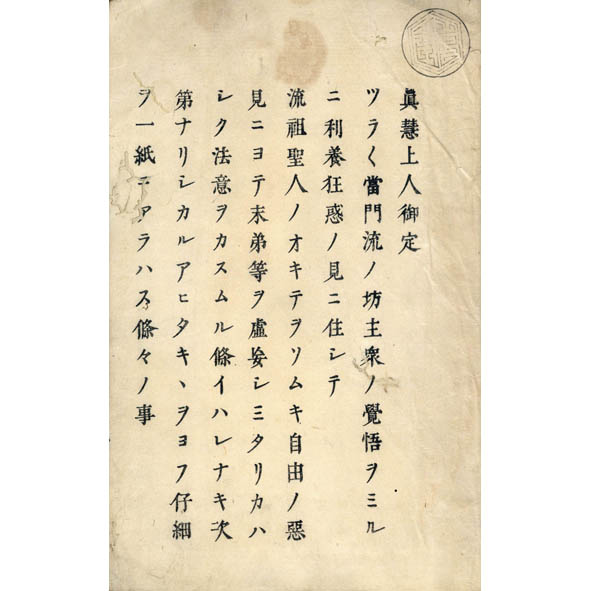 眞慧上人御定
ツラ〱當門流ノ坊主衆ノ覺悟ヲミル
ニ利養狂惑ノ見ニ住シテ
流祖聖人ノオキテヲソムキ自由ノ惡
見ニヨテ末弟等ヲ虛妄シミタリカハ
シク法意ヲカスムル條イハレナキ次
第ナリシカルアヒタキヽヲヨフ仔細
ヲ一紙ニアラハス條々ノ事